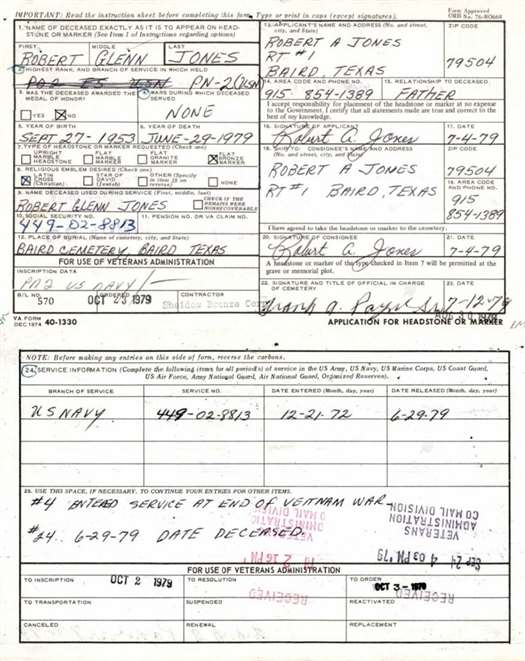 IMPORTANT: Read the instruction sheet before completing this form. Type or print in caps (except signatures).
Form Approved
OMB No. 76-RO668
1. NAME OF DECEASED EXACTLY AS IT IS TO APPEAR ON HEAD-
STONE OR MARKER (See Item 1 of Instructions regarding options)
FIRST MIDDLE LAST
ROBERT GLENN JONES
2. HIGHEST RANK, AND BRANCH OF SERVICE IN WHICH HELD
PN-2 (USN)
3. WAS DECEASED AWARDED THE MEDAL OF HONOR?
YES NO
4. WARS DURING WHICH DECEASED SERVED
NONE
5. YEAR OF BIRTH
SEPT-27-1953
6. YEAR OF DEATH
JUNE-29-1979
7. TYPE OF HEADSTONE OR MARKER REQUESTED (Check one)
UPRIGHT MARBLE HEADSTONE
FLAT MARBLE MARKER
FLAT GRANITE MARKER
FLAT BRONZE MARKER
8. RELIGIOUS EMBLEM DESIRED (Check one)
LATIN CROSS (Christian)
STAR OF DAVID (Jewish)
OTHER (Specify in item 25 on reverse)
NONE
9. NAME DECEASED USED DURING SERVICE (First, middle, last)
ROBERT GLENN JONES
CHECK IF THE REMAINS WERE NONRECOVERABLE
10. SOCIAL SECURITY NO.
449-02-8813
11. PENSION NO. OR VA CLAIM NO.
12. PLACE OF BURIAL (Name of cemetery, city, and State)
BAIRD CEMETERY, BAIRD TEXAS
FOR USE OF VETERANS ADMINISTRATION
INSCRIPTION DATA
PN2 US NAVY
B/L NO
570
OCT 23 1979
CONTRACTOR
Sheidow Bronze Corp
VA FORM
DEC 1974
40-1330
13. APPLICANT'S NAME AND ADDRESS (No. and street, city, and State)
ZIP CODE
ROBERT A JONES
RT #1
BAIRD TEXAS
79504
14. AREA CODE AND PHONE NO.
915 854-1389
15. RELATIONSHIP TO DECEASED
FATHER
I accept responsibility for placement of the headstone or marker at no expense
to the Government, I certify that all statements made are true and correct to the
best of my knowledge.
16. SIGNATURE OF APPLICANT
Robert A. Jones
17. DATE
7-4-79
18. SHIP TO: CONSIGNEE'S NAME AND ADDRESS (No. and street, city, and State)
ZIP CODE
ROBERT A JONES
79504
RT #1 BAIRD, TEXAS
19. AREA CODE AND PHONE NO.
915
854-1389
I have agreed to take the headstone or marker to the cemetery.
20. SIGNATURE OF CONSIGNEE
Robert A. Jones
21. DATE
7-4-79
A headstone or marker of the type checked in Item 7 will be permitted at the
grave or memorial plot.
22. SIGNATURE AND TITLE OF OFFICIAL IN CHARGE OF CEMETERY
23. DATE
7-12-79
APPLICATION FOR HEADSTONE OR MARKER
NOTE: Before making any entries on this side of form, reverse the carbons.
24. SERVICE INFORMATION (Complete the following items for all period(s) of service in the US Army, US Navy, US Marine Corps, US Coast Guard,
US Air Force, Army National Guard, Air National Guard, Organized Reserves).
BRANCH OF SERVICE SERVICE NO. DATE ENTERED (Month, day, year) DATE RELEASED (Month, day, year)
US NAVY 449-02-8813 12-21-72 6-29-79
25. USE THIS SPACE, IF NECESSARY, TO CONTINUE YOUR ENTRIES FOR OTHER ITEMS.
#4 ENTERED SERVICE AT END OF VEITNAM WAR
#24 6-29-79 DATE DECEASED
VETERANS
ADMINISTRATION
CO MAIL DIVISION
SEP 24 4 03 PM '79
FOR USE OF VETERANS ADMINISTRATION
TO INSCRIPTION OCT 2 1979
TO RESOLUTION
TO ORDER OCT 3-1979
TO TRANSPORTATION
SUSPENDED
RECEIVED
REACTIVATED
RECEIVED
CANCELED
RENEWAL
REPLACEMENT